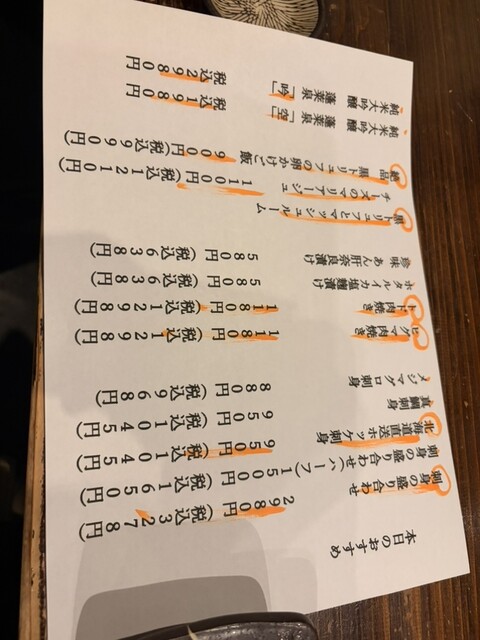 本日のおすすめ
刺身の盛り合わせ 2980円(税込3278円)
刺身の盛り合わせ(ハーフ)1500円(税込1650円)
北海道直送ホッケ刺身 950円(税込1045円)
真鯛刺身 950円(税込1045円)
メジマグロ刺身 880円(税込968円)
ヒグマ肉焼き 1180円(税込1298円)
トド肉焼き 1180円(税込1298円)
ホタルイカ塩麹漬け 580円(税込638円)
珍味 あん肝奈良漬け 580円(税込638円)
黒トリュフとマッシュルーム
チーズのマリアージュ 1100円(税込1210円)
絶品 黒トリュフの卵かけご飯 900円(税込990円)
純米大吟醸 蓬莱泉「空」 税込1980円
純米大吟醸 蓬莱泉「吟」 税込2980円